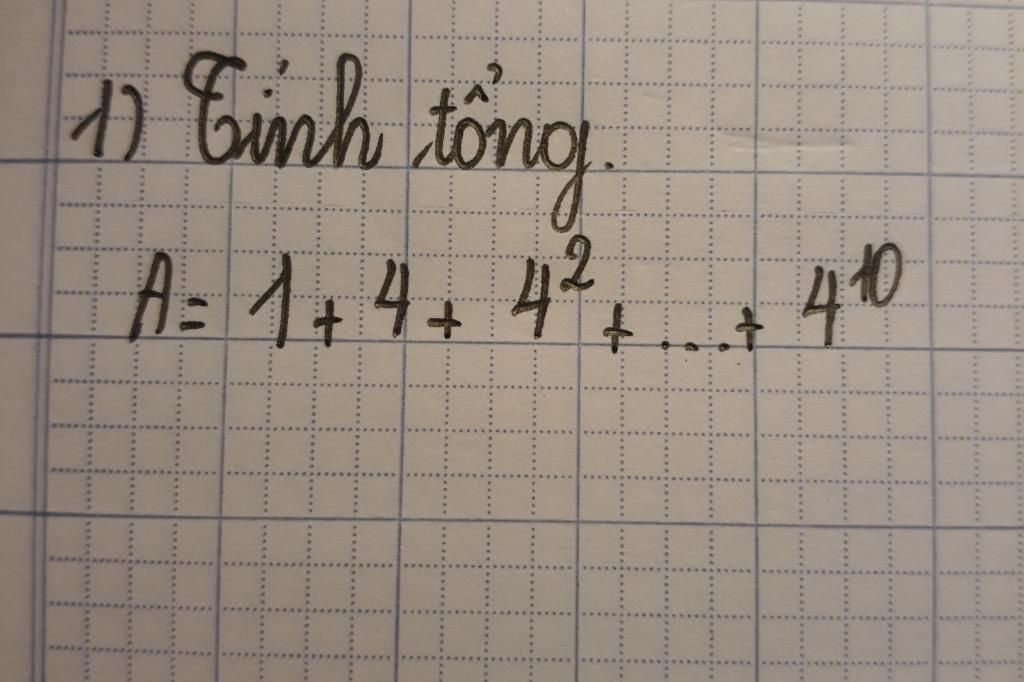 1) Tính tổng.
A = 1 + 4 + 4² + ... + 4¹⁰